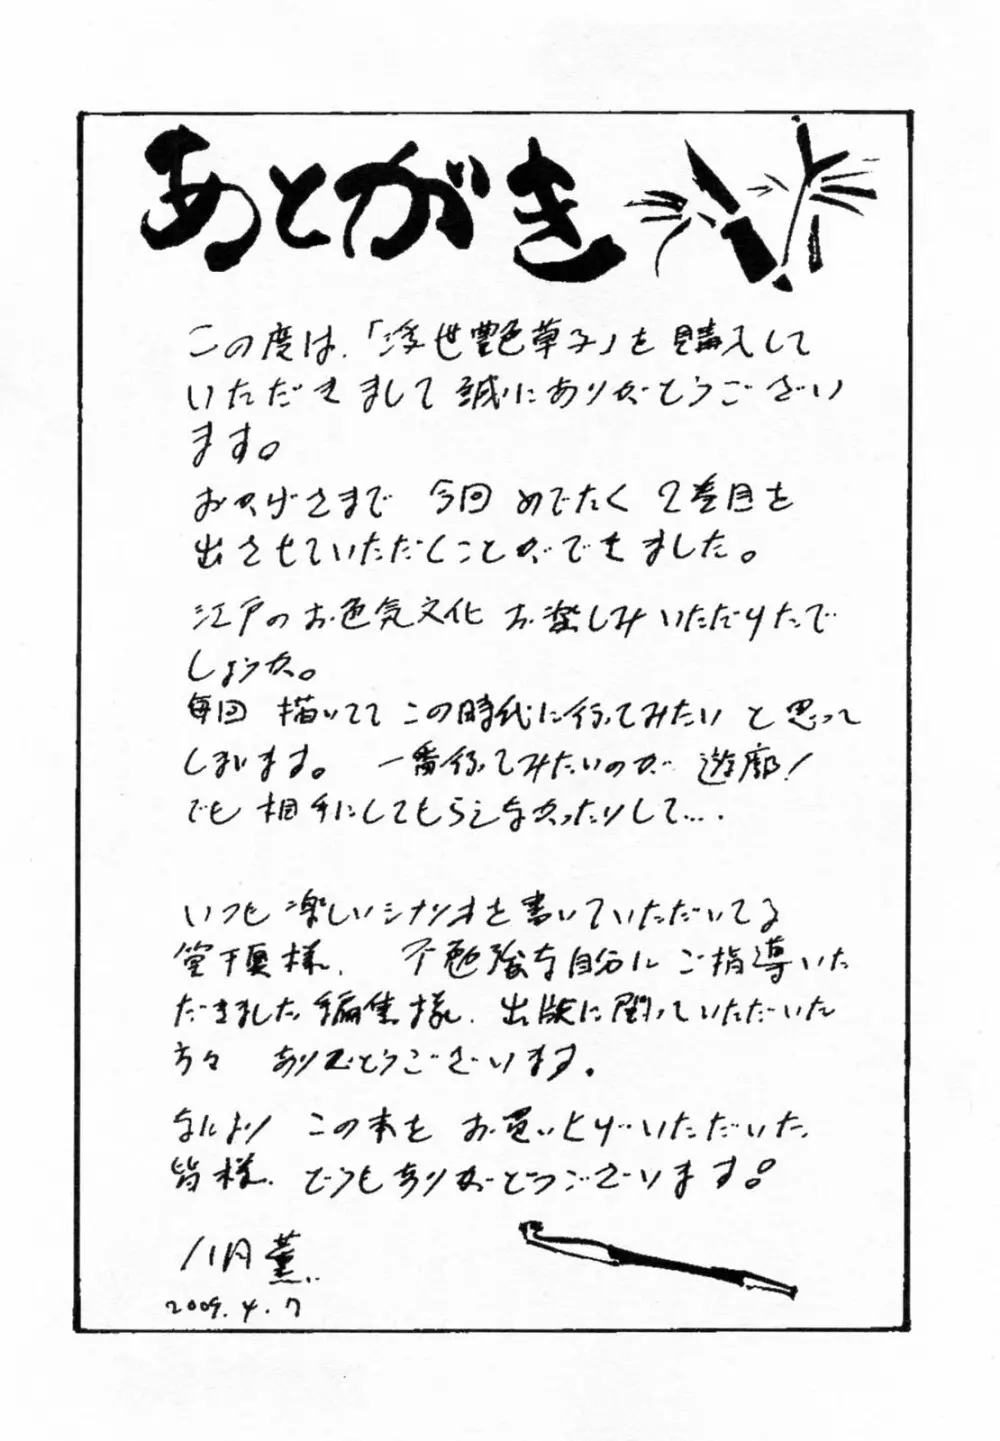 あとがき
この度は、「浮世艶色草子」を購入して
いただきまして誠にありがとうござい
ます。
おかげさまで 今回 めでたく 2巻目を
出させていただくことができました。
江戸のお色気文化 お楽しみいただけたで
しょうか。
毎回 描いてて この時代に行ってみたい と思って
しまいます。 一番行ってみたいのが 遊廓!
でも 相手にしてもらえなかったりして….
いつも 楽しいシナリオを書いていただいてる
堂下真様、 不勉強な自分に ご指導いた
だきました編集様、出版に関っていただいた
方々 ありがとうございます.
なにより この本を お買いとげいただいた、
皆様、どうもありがとうございます。
八月薫
2009.4.7